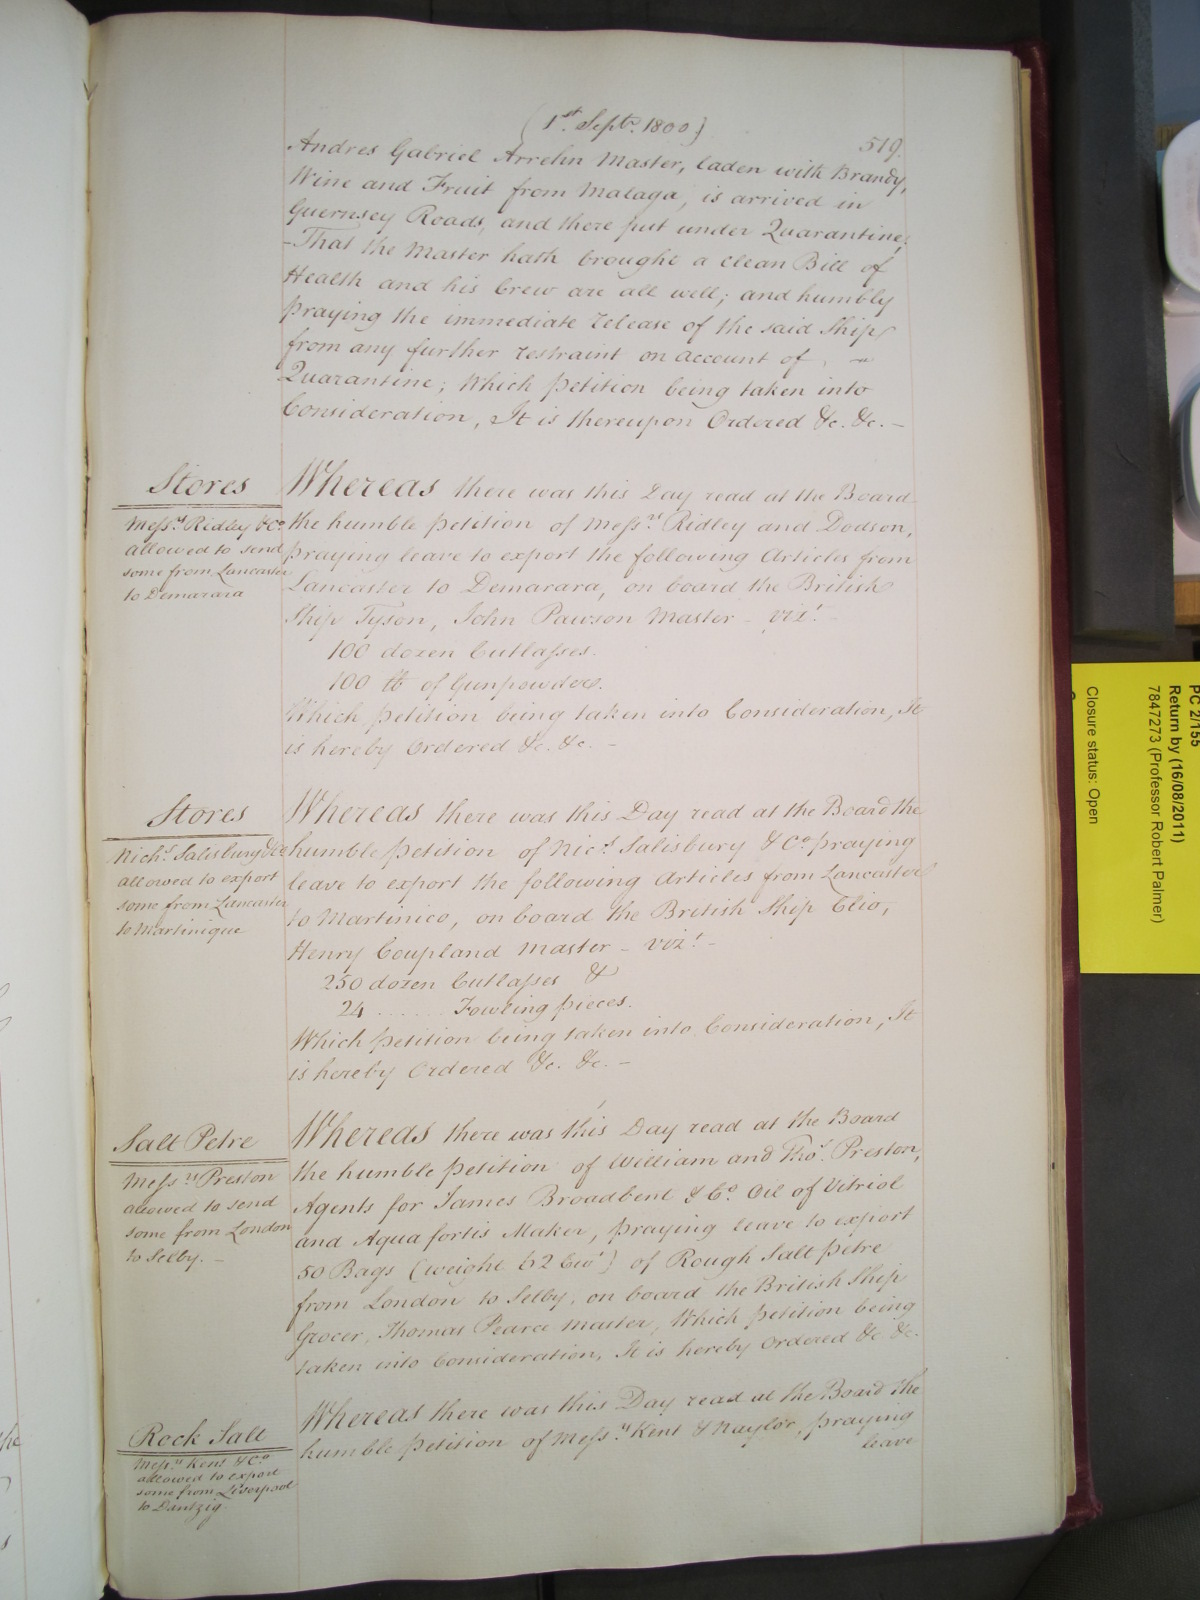 (1st. Septr. 1800)
519.
Andres Gabriel Arrehn Master, laden with Brandy,
Wine and Fruit from Malaga, is arrived in
Guernsey Roads, and there put under Quarantine;
-That the Master hath brought a clean Bill of
Health and his Crew are all well; and humbly
praying the immediate release of the said Ship
from any further restraint on account of
Quarantine; Which petition being taken into
Consideration, It is thereupon Ordered &c. &c. -
Stores
Messrs. Ridley & Co
allowed to send
some from Lancaster
to Demarara
Whereas there was this Day read at the Board
the humble petition of Messrs. Ridley and Dodson,
praying leave to export the following Articles from
Lancaster to Demarara, on board the British
Ship Tyson, John Pawson Master - vizt. -
100 dozen Cutlasses.
100 lb of Gunpowder.
Which petition being taken into Consideration, It
is hereby Ordered &c. &c. -
Stores
Nichs. Salisbury & Co
allowed to export
some from Lancaster
to Martinique
Whereas there was this Day read at the Board the
humble petition of Nics. Salisbury & Co praying
leave to export the following Articles from Lancaster
to Martinico, on board the British Ship Clio,
Henry Coupland Master - vizt. -
250 dozen Cutlasses &
24 ....... Fowling pieces.
Which petition being taken into Consideration, It
is hereby Ordered &c. &c. -
Salt Petre
Messrs. Preston
allowed to send
some from London
to Selby. -
Whereas there was this Day read at the Board
the humble petition of William and Thos. Preston,
Agents for James Broadbent & Co. Oil of Vitriol
and Aqua fortis Maker, praying leave to export
50 Bags (weight 62 Cwt) of Rough Salt petre
from London to Selby, on board the British Ship
Grocer, Thomas Pearce Master, Which petition being
taken into Consideration, It is hereby Ordered &c. &c.
Rock Salt
Messrs. Kent & Co
allowed to export
some from Liverpool
to Dantzig.
Whereas there was this Day read at the Board the
humble petition of Messrs. Kent & Naylor, praying
leave
PC 2/155
Return by (16/08/2011)
7847273 (Professor Robert Palmer)
Closure status: Open